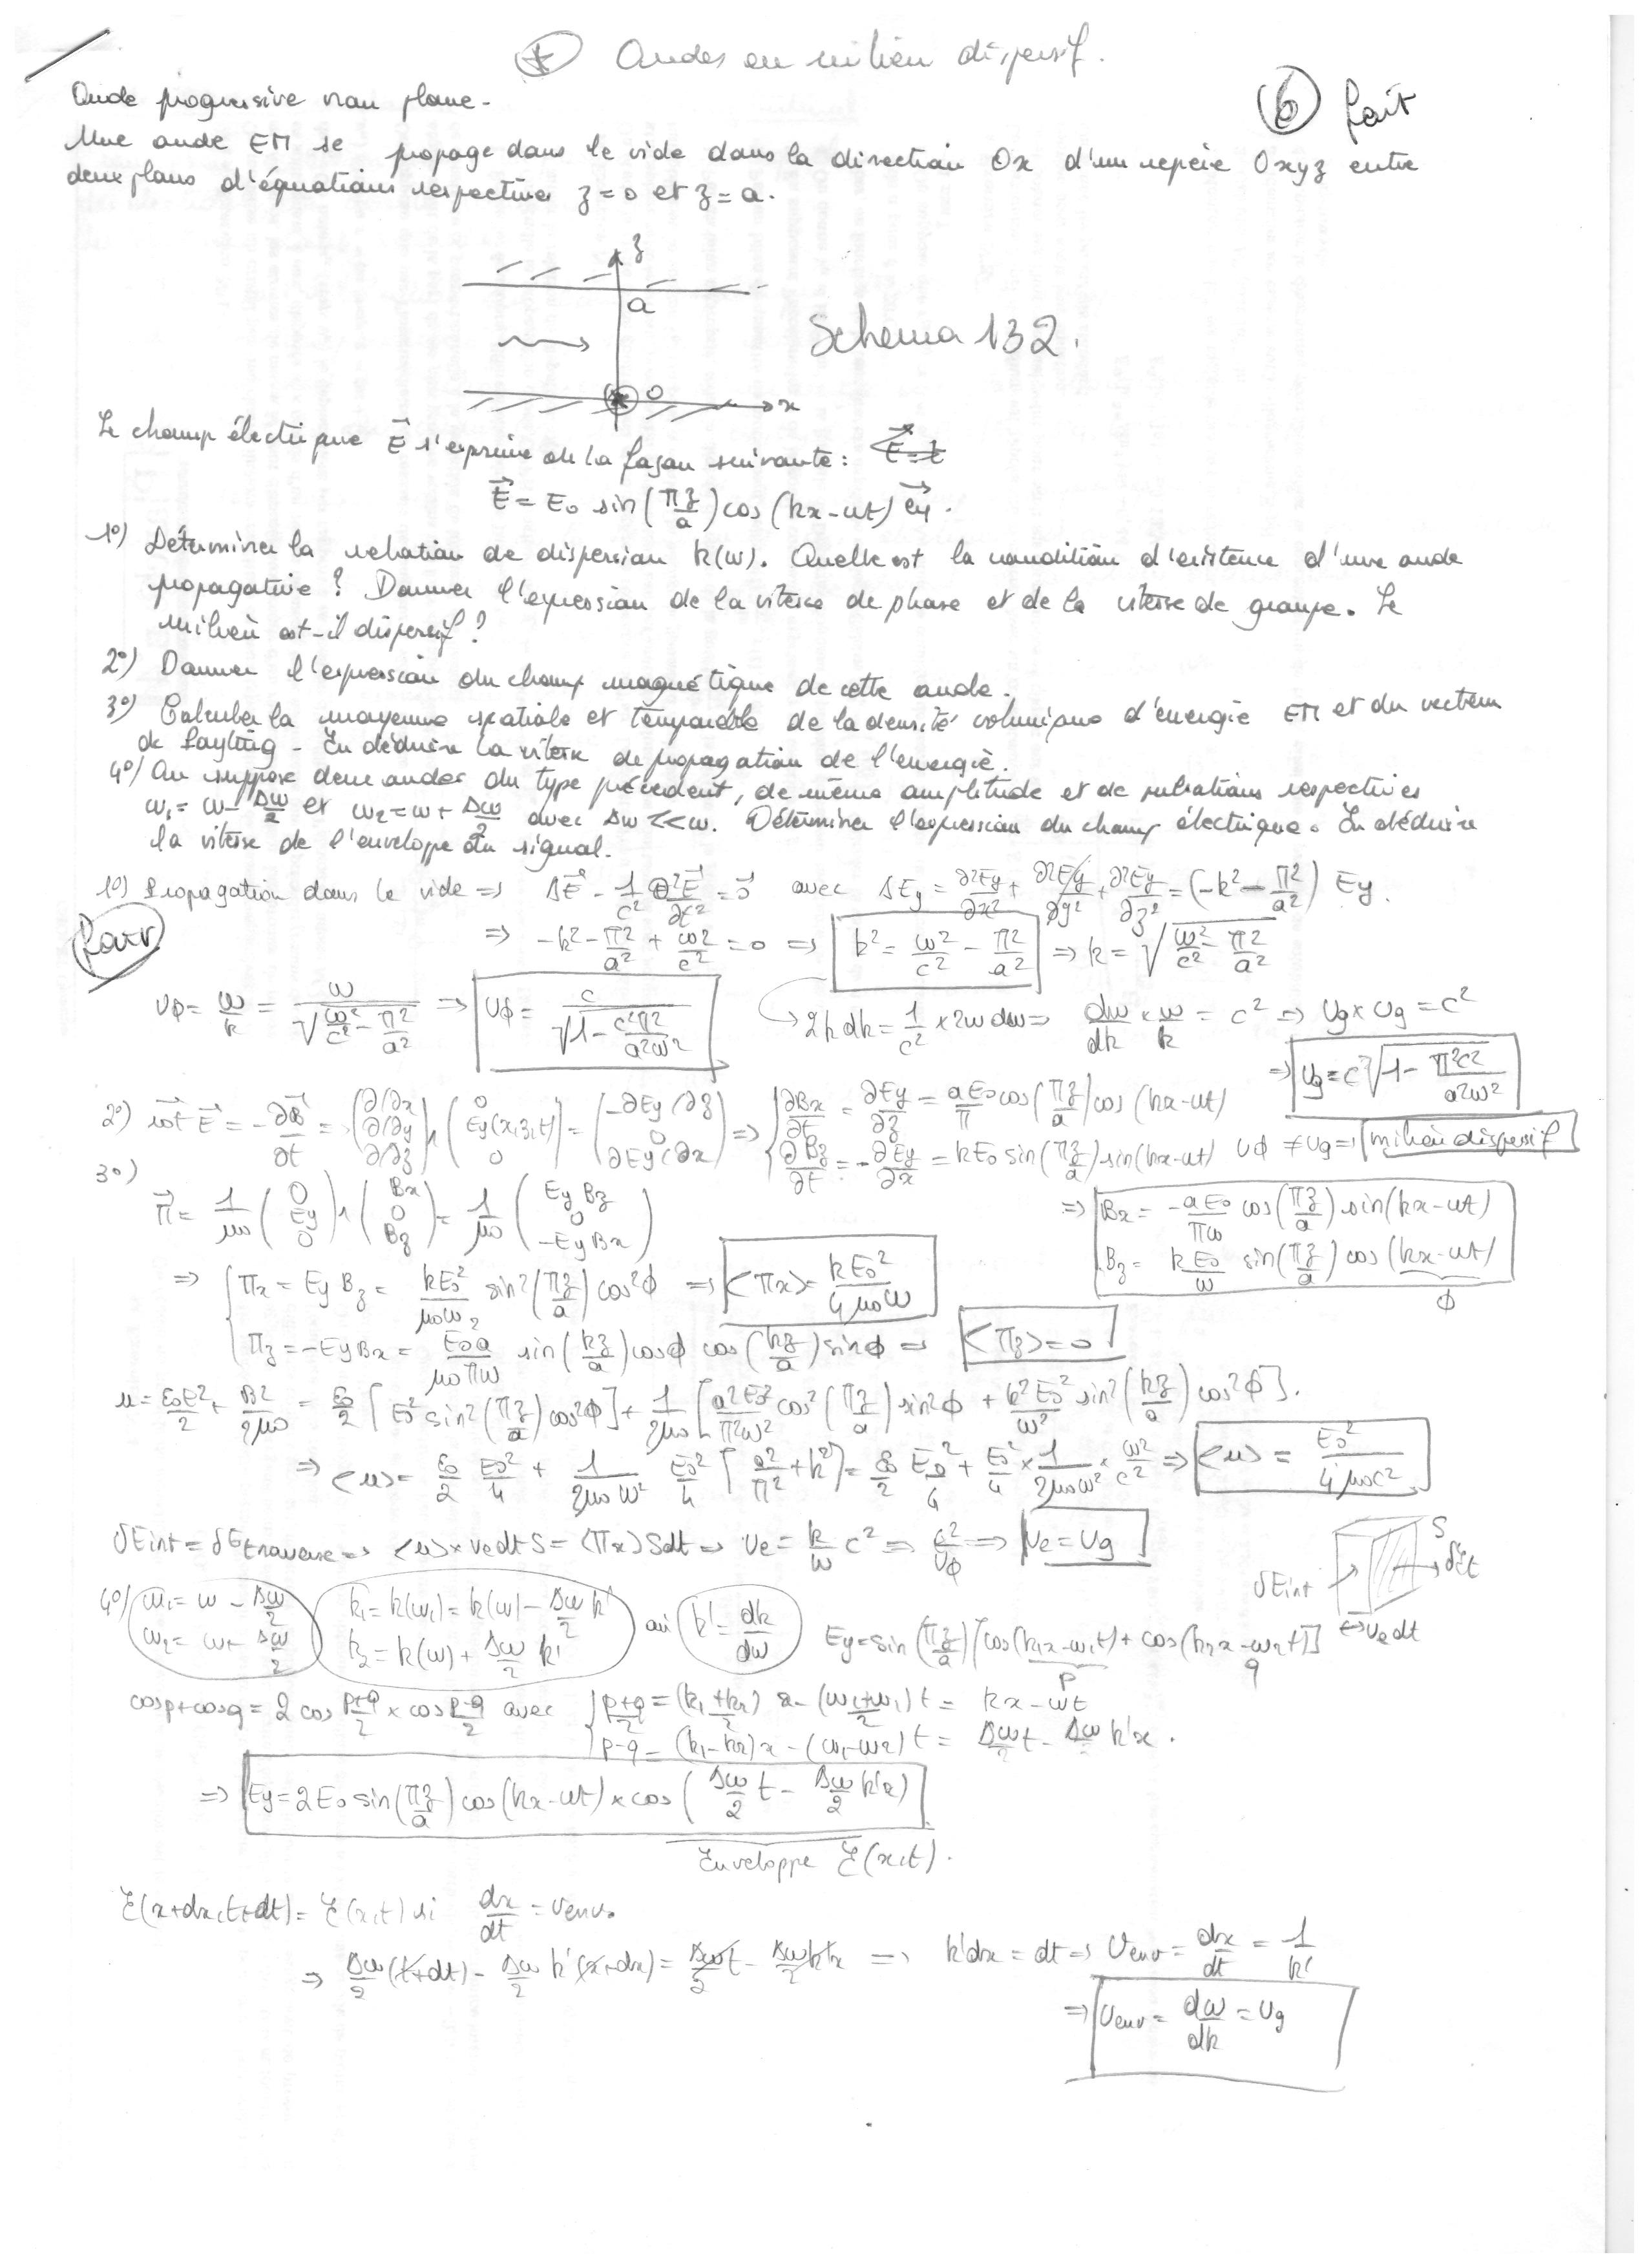 * Ondes en milieu dispersif.
Onde progressive non plane.
6 fait
Une onde EM se propage dans le vide dans la direction Ox d'un repère Oxyz entre
deux plans d'équations respectives z=0 et z=a.
z
a
Schema 132.
O
x
Le champ électrique E⃗ s'exprime de la façon suivante :
E⃗ = E₀ sin(πz/a) cos(kx-ωt) e⃗y.
1°) Déterminer la relation de dispersion k(ω). Quelle est la condition d'existence d'une onde
propagative ? Donner l'expression de la vitesse de phase et de la vitesse de groupe. Le
milieu est-il dispersif ?
2°) Donner l'expression du champ magnétique de cette onde.
3°) Calculer la moyenne spatiale et temporelle de la densité volumique d'énergie EM et du vecteur
de Poynting - En déduire la vitesse de propagation de l'énergie.
4°) On suppose deux ondes du type précédent, de même amplitude et de pulsations respectives
ω₁ = ω - Δω/2 et ω₂ = ω + Δω/2 avec Δω << ω. Déterminer l'expression du champ électrique. En déduire
la vitesse de l'enveloppe du signal.
1°) Propagation dans le vide => ΔE⃗ - 1/c² ∂²E⃗/∂t² = 0⃗ avec ΔEy = ∂²Ey/∂x² + ∂²Ey/∂y² + ∂²Ey/∂z² = (-k² - π²/a²) Ey.
=> -k² - π²/a² + ω²/c² = 0 => k² = ω²/c² - π²/a² => k = √(ω²/c² - π²/a²)
vφ = ω/k = ω/√(ω²/c² - π²/a²) => vφ = c/√(1 - c²π²/a²ω²)
2k dk = 1/c² × 2ω dω => dω/dk × ω/k = c² => vg × vg = c²
=> vg = c √(1 - π²c²/a²ω²)
2°) rot E⃗ = -∂B⃗/∂t = (∂/∂x ∂/∂y ∂/∂z) ∧ (0 Ey(x,z,t) 0) = (-∂Ey/∂z 0 ∂Ey/∂x) => { ∂Bx/∂t = ∂Ey/∂z = aE₀/π cos(πz/a) cos(kx-ωt)
∂Bz/∂t = -∂Ey/∂x = kE₀ sin(πz/a) sin(kx-ωt) vφ ≠ vg => milieu dispersif
=> Bx = -aE₀/πω cos(πz/a) sin(kx-ωt)
Bz = kE₀/ω sin(πz/a) cos(kx-ωt)
φ
3°)
Π⃗ = 1/μ₀ (0 Ey 0) ∧ (Bx 0 Bz) = 1/μ₀ (EyBz 0 -EyBx)
=> { Πx = EyBz = kE₀²/μ₀ω sin²(πz/a) cos²φ => <Πx> = kE₀²/4μ₀ω
Πz = -EyBx = E₀²a/μ₀πω sin(kz/a) cosφ cos(kz/a) sinφ => <Πz> = 0
u = ε₀E²/2 + B²/2μ₀ = ε₀/2 [E₀² sin²(πz/a) cos²φ] + 1/2μ₀ [a²E₀²/π²ω² cos²(πz/a) sin²φ + k²E₀²/ω² sin²(kz/a) cos²φ].
=> <u> = ε₀/2 E₀²/4 + 1/2μ₀ω² E₀²/4 [a²/π² + k²] = ε₀/2 E₀²/4 + E₀²/4 × 1/2μ₀ω² × ω²/c² => <u> = E₀²/4μ₀c²
δEint = δEtraverse => <u> × ve dt S = <Πx> S dt => ve = k/ω c² => c²/vφ => ve = vg
δEint
S
δEt
ve dt
4°) ω₁ = ω - Δω/2
ω₂ = ω + Δω/2
k₁ = k(ω₁) = k(ω) - Δω/2 k'
k₂ = k(ω) + Δω/2 k'
où k' = dk/dω
Ey = sin(πz/a) [cos(k₁x-ω₁t) + cos(k₂x-ω₂t)]
p
q
cosp + cosq = 2 cos p+q/2 × cos p-q/2 avec { p+q/2 = (k₁+k₂)/2 x - (ω₂+ω₁)/2 t = kx-ωt
p-q = (k₁-k₂)x - (ω₁-ω₂)t = Δω t - Δω k'x.
=> Ey = 2E₀ sin(πz/a) cos(kx-ωt) × cos(Δω/2 t - Δω/2 k'x)
Enveloppe ξ(x,t).
ξ(x+dx,t+dt) = ξ(x,t) si dx/dt = venv.
=> Δω/2 (t+dt) - Δω/2 k'(x+dx) = Δω/2 t - Δω/2 k'x => k'dx = dt => venv = dx/dt = 1/k'
=> venv = dω/dk = vg